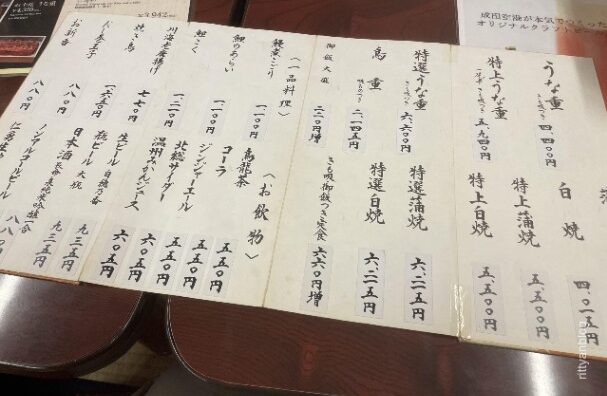 うな重
きも吸つき
四、四〇〇円
特上うな重
きも吸つき
五、九四〇円
白焼
四、〇一五円
特上蒲焼
五、五〇〇円
特上白焼
五、五〇〇円
特選うな重
きも吸つき
六、六〇〇円
鳥重
二、一四五円
御飯大盛
二二〇円増
特選蒲焼
六、二一五円
特選白焼
六、二一五円
きも吸、御飯つき定食
六六〇円増
〈一品料理〉
鰻煮こごり
一、一〇〇円
鯉のあらい
一、一〇〇円
鯉こく
一、二一〇円
川海老唐揚げ
一、二一〇円
焼き鳥
七七〇円
八八〇円
お新香
八八〇円
〈お飲物〉
烏龍茶
五五〇円
コーラ
五五〇円
ジンジャーエール
五五〇円
北総サイダー
五五〇円
温州みかんジュース
六〇五円
生ビール
六〇五円
瓶ビール 大瓶
九三五円
日本酒
九三五円
ノンアルコールビール
成田空港が本気で
オリジナルクラフトビー
rittyanblog